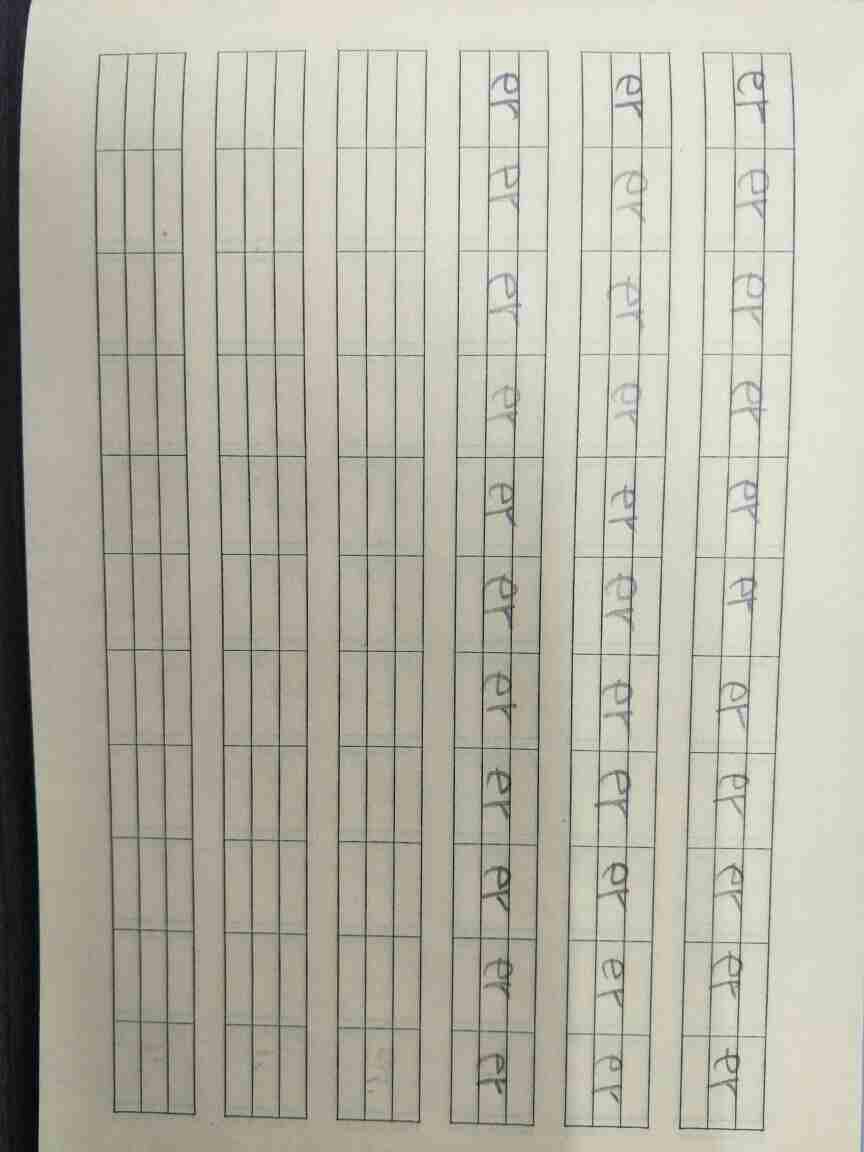 er er er er er er er er er er er
er er er er er er er er er er er
er er er er er er er er er er er